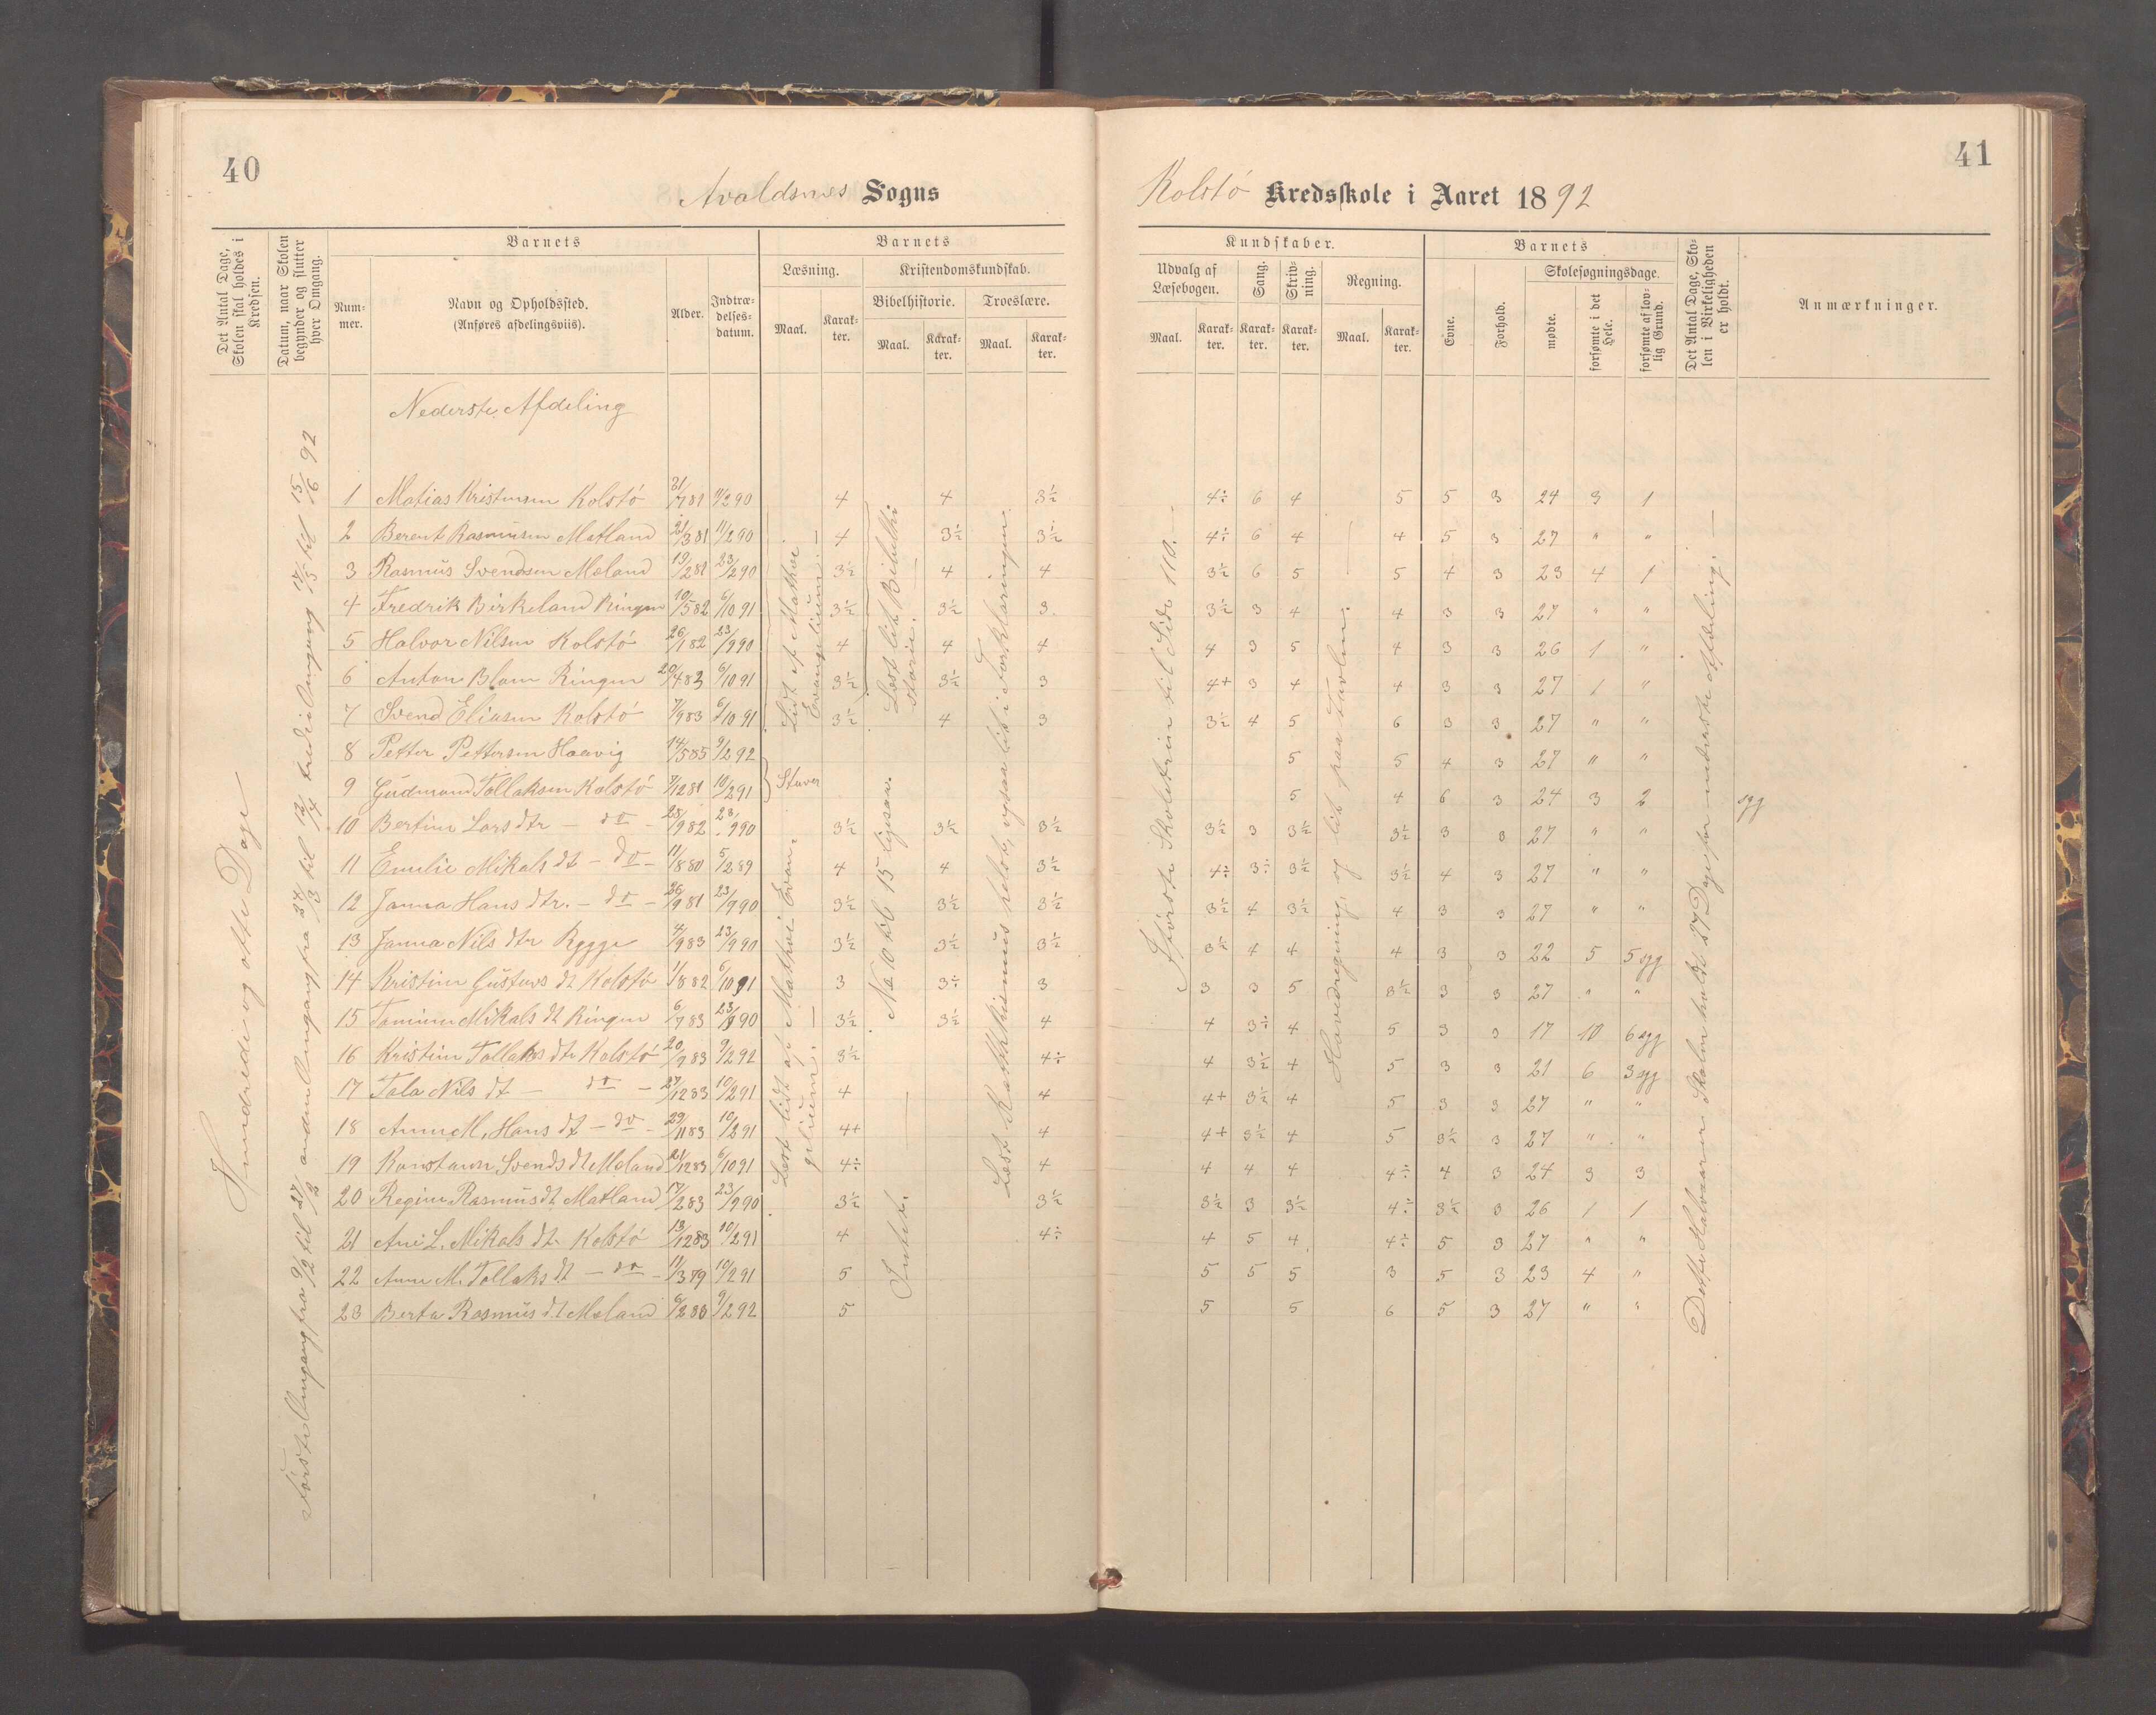 40
Avaldsnes Sogns
Det Antal Dage, Skolen skal holdes i Kredsen.
Datum, naar Skolen begynder og slutter hver Omgang.
Barnets
Num-mer.
Navn og Opholdssted.
(Anføres afdelingsviis).
Alder.
Indtræ-delses-datum.
Barnets
Læsning.
Kristendomskundskab.
Bibelhistorie.
Troeslære.
Maal.
Karak-ter.
Maal.
Karak-ter.
Maal.
Karak-ter.
Hundrede og otte Dage
Første Omgang fra 9/2 til 27/2 anden Omgang fra 24/3 til 12/4 tredie Omgang 17/5 til 15/6 92
Nederste Afdeling
1 Matias Kristensen Kolstø 21/7 81 11/2 90 4 4 3½
2 Berent Rasmussen Matland 21/3 81 11/2 90 4 3½ 3½
3 Rasmus Svendsen Meland 13/2 81 23/2 90 3½ 4 4
4 Fredrik Birkeland Ringen 10/5 82 6/10 91 3½ 3½ 3
5 Halvor Nilsen Kolstø 26/1 82 23/9 90 4 4 4
6 Anton Blom Ringen 20/4 83 6/10 91 3½ 3½ 3
7 Svend Eliasen Kolstø 7/9 83 6/10 91 3½ 4 3
8 Petter Pettersen Haavig 14/5 85 9/2 92
9 Gudmund Tollaksen Kolstø 3/12 81 10/2 91 Staver
10 Bertine Lars dtr - do - 25/9 82 23/9 90 3½ 3½ 3½
11 Emelie Mikals dt - do - 11/8 80 5/2 89 4 4 3½
12 Janna Hans dtr. - do - 26/9 81 23/9 90 3½ 3½ 3½
13 Janna Nils dtr Rygge 4/9 83 23/9 90 3½ 3½ 3½
14 Kristine Gustavs dt Kolstø 1/8 82 6/10 91 3 3÷ 3
15 Tomine Mikals dt Ringen 6/7 83 23/9 90 3½ 3½ 4
16 Kristine Tollaks dtr Kolstø 20/9 83 9/2 92 3½ 4÷
17 Tala Nils dt - do - 27/12 83 10/2 91 4 4
18 Anne M. Hans dt - do - 29/11 83 10/2 91 4+ 4
19 Konstanse Svends dt Meland 21/12 83 6/10 91 4÷ 4
20 Regine Rasmus dt Matland 17/2 83 23/9 90 3½ 3½
21 Ane L. Mikals dt. Kolstø 13/12 83 10/2 91 4 4÷
22 Anne M. Tollaks dt - do - 11/3 79 10/2 91 5
23 Berta Rasmus dt Meland 6/2 83 9/2 92 5
Lidt af Mathæi Evangelium.
Læst lidt af Matthæi Evangelium.
Læst lidt Bibelhistorie.
No 10 til 15 ligesaa.
Intet.
Læst Katekismus helst, ogsaa lidt i Forklaringen.
41
Kolstø Kredsskole i Aaret 1892
Kundskaber.
Udvalg af Læsebogen.
Sang.
Skriv-ning.
Regning.
Maal.
Karak-ter.
Karak-ter.
Karak-ter.
Maal.
Karak-ter.
Barnets
Evne.
Forhold.
Skolesøgningsdage.
mødte.
forsømte i det Hele.
forsømte af lov-lig Grund.
Det Antal Dage, Sko-len i Virkeligheden er holdt.
Anmærkninger.
4÷ 6 4 5 5 3 24 3 1
4÷ 6 4 4 5 3 27 " "
3½ 6 5 5 4 3 23 4 1
3½ 3 4 4 3 3 27 " "
4 3 5 4 3 3 26 1 "
4+ 3 4 4 3 3 27 1 "
3½ 4 5 6 3 3 27 " "
5 5 4 3 27 " "
5 4 6 3 24 3 2 syg
3½ 3 3½ 3½ 3 3 27 " "
4÷ 3÷ 3½ 3½ 4 3 27 " "
3½ 4 3½ 4 3 3 27 " "
3½ 4 4 4 3 3 22 5 5 syg
3 3 5 3½ 3 3 27 " "
4 3÷ 4 5 3 3 17 10 6 syg
4 3½ 4 5 3 3 21 6 3 syg
4+ 3½ 4 5 3 3 27 " "
4+ 3½ 4 5 3½ 3 27 " "
4 4 4 4÷ 4 3 24 3 3
3½ 3 3½ 4÷ 3½ 3 26 1 1
4 5 4 4÷ 5 3 27 " "
5 5 5 3 5 3 23 4 "
5 5 6 5 3 27 " "
Første Skoletrin til Side 110.
Hovedregning, og lidt paa Tavlen.
Dette Halvaar er Skolen holdt 27 Dage for nederste Afdeling.